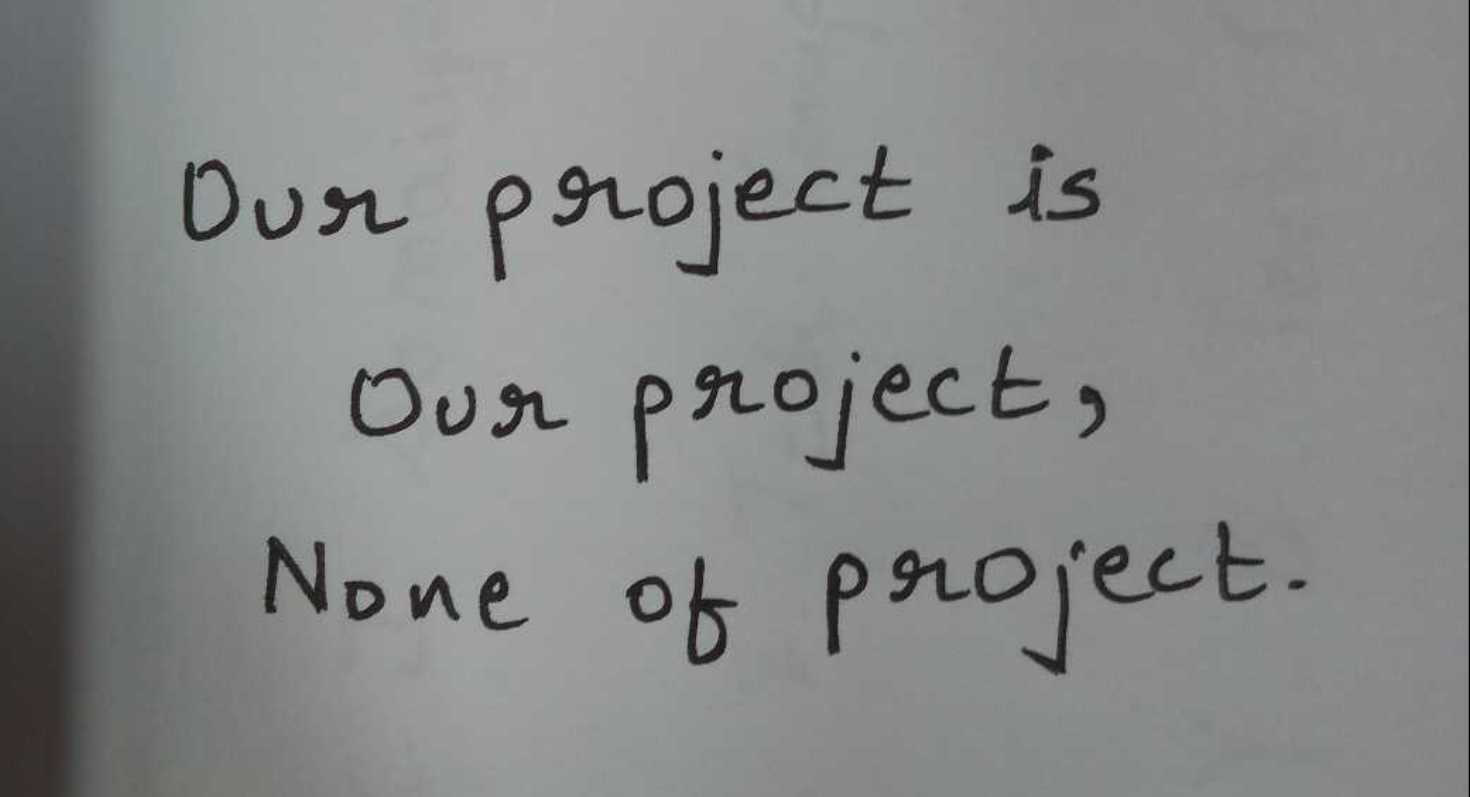 Our project is
Our project,
None of project.